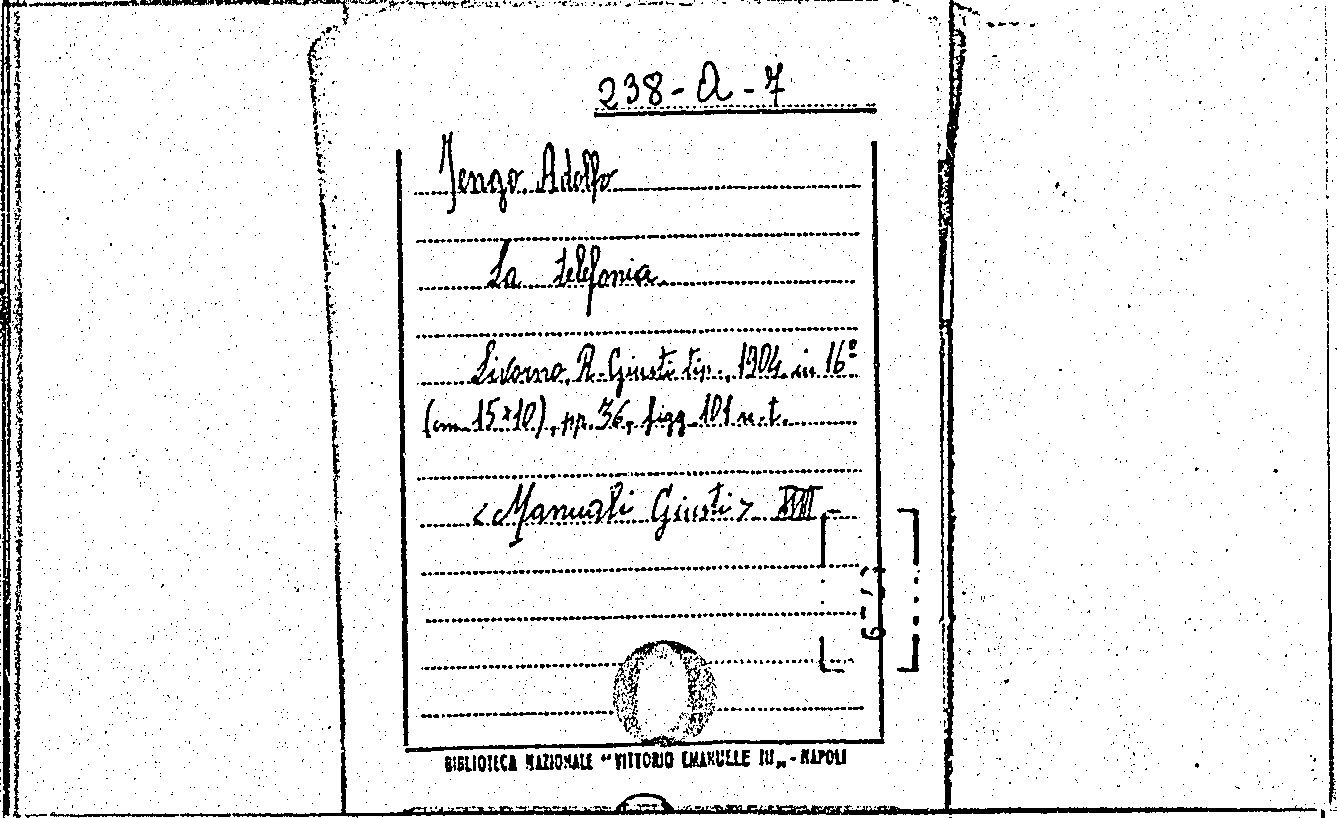 238-A-7
Jengo Adolfo
La telefonia
Livorno, R. Giusti tip., 1904, in 16º
(cm. 15x10), pp. 36, figg. 101 n. t.
<Manuali Giusti>
BIBLIOTECA NAZIONALE "VITTORIO EMANUELE III„ - NAPOLI